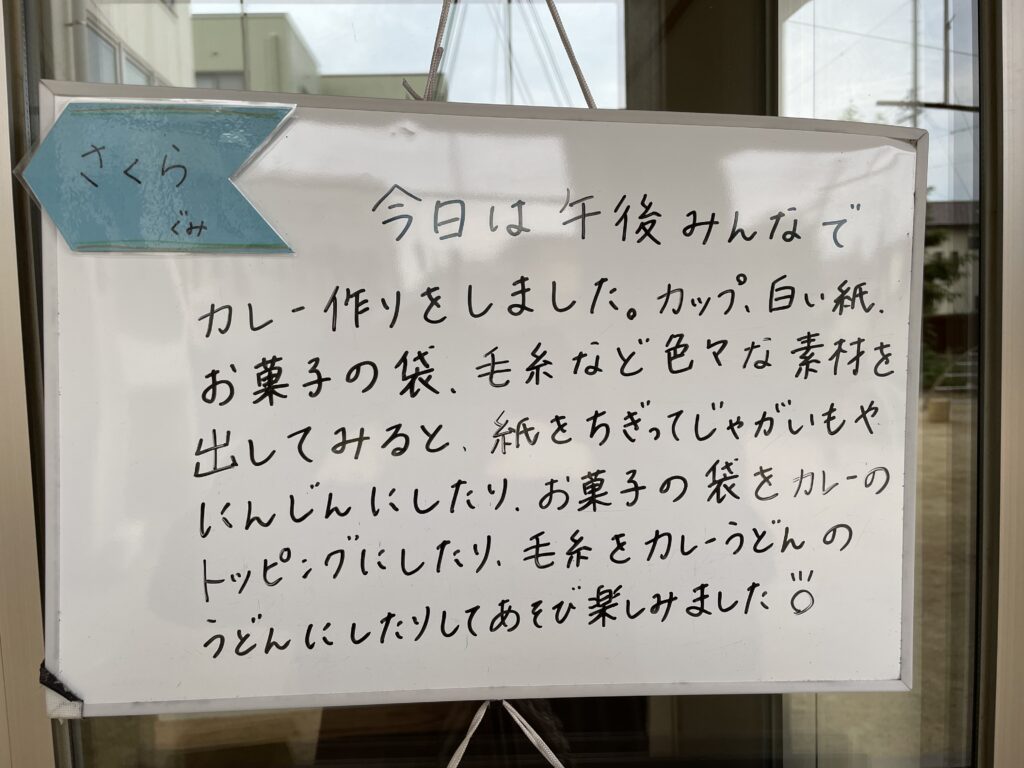 さくら
ぐみ
今日は午後みんなで
カレー作りをしました。カップ、白い紙、
お菓子の袋、毛糸など色々な素材を
出してみると、紙をちぎってじゃがいもや
にんじんにしたり、お菓子の袋をカレーの
トッピングにしたり、毛糸をカレーうどんの
うどんにしたりしてあそび楽しみました